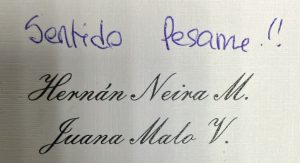 Sentido Pesame!!
Hernán Neira M.
Juana Malo V.